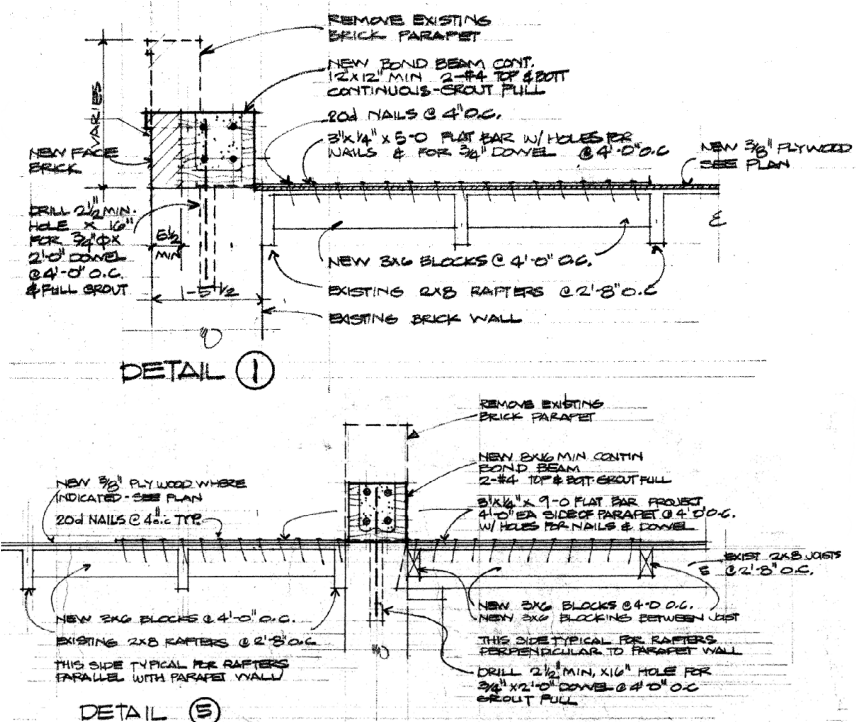 REMOVE EXISTING
BRICK PARAPET
NEW BOND BEAM CONT.
12X12" MIN 2-#4 TOP & BOTT
CONTINUOUS-GROUT FULL
20d NAILS @ 4" O.C.
3"X1/4" X 5-0 FLAT BAR W/ HOLES FOR
NAILS & FOR 3/4" DOWEL @ 4'-0" O.C
NEW 3/8" PLYWOOD
SEE PLAN
VARIES
NEW FACE
BRICK
DRILL 2 1/2" MIN.
HOLE X 16"
FOR 3/4"φX
2'-0" DOWEL
@ 4'-0" O.C.
& FULL GROUT
5 1/2
MIN
1-5 1/2
NEW 3X6 BLOCKS @ 4'-0" O.C.
EXISTING 2X8 RAFTERS @ 2'-8" O.C
EXISTING BRICK WALL
DETAIL 1
REMOVE EXISTING
BRICK PARAPET
NEW 8X16 MIN CONTIN
BOND BEAM
2-#4 TOP & BOTT GROUT FULL
3"X1/4" X 9-0 FLAT BAR PROJECT
4'-0" EA SIDE OF PARAPET @ 4'-0" O.C.
W/ HOLES FOR NAILS & DOWEL
NEW 3/8" PLYWOOD WHERE
INDICATED - SEE PLAN
20d NAILS @ 4 o.c TYP.
EXIST 2X8 JOISTS
@ 2'-8" O.C.
NEW 3X6 BLOCKS @ 4'-0" O.C.
EXISTING 2X8 RAFTERS @ 2'-8" O.C
THIS SIDE TYPICAL FOR RAFTERS
PARALLEL WITH PARAPET WALL
NEW 3X6 BLOCKS @ 4-0 O.C.
NEW 3X6 BLOCKING BETWEEN JOIST
THIS SIDE TYPICAL FOR RAFTERS
PERPENDICULAR TO PARAPET WALL
DRILL 2 1/2" MIN, X16" HOLE FOR
3/4" X 2'-0" DOWEL @ 4'-0" O.C
GROUT FULL
DETAIL 5